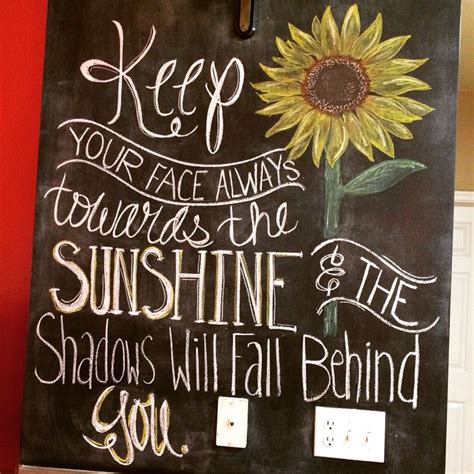 Keep
YOUR FACE ALWAYS
towards the
SUNSHINE & THE
Shadows Will Fall Behind
you.